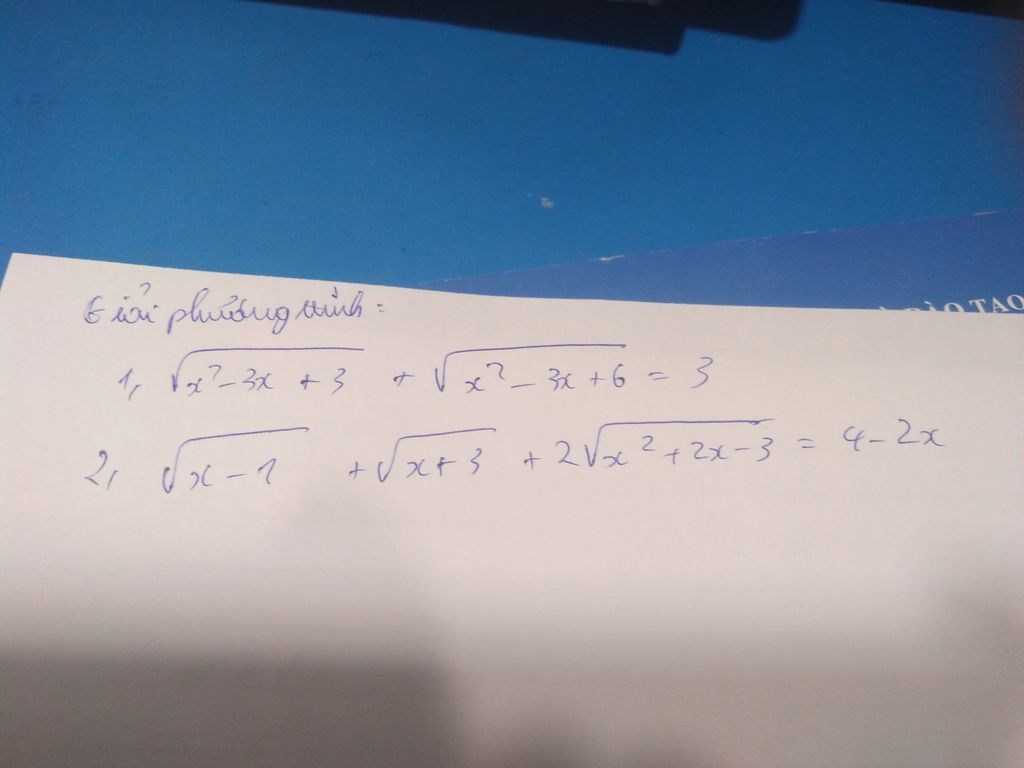 Giải phương trình:
1, √(x² - 3x + 3) + √(x² - 3x + 6) = 3
2, √(x - 1) + √(x + 3) + 2√(x² + 2x - 3) = 4 - 2x
ĐÀO TẠO